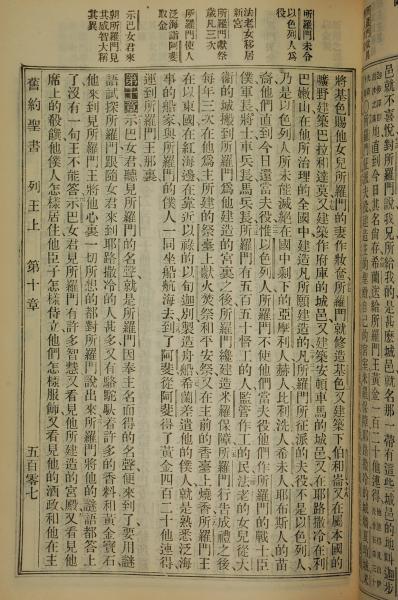 將基色賜他女兒所羅門的妻作妝奩所羅門就修造基色又建築下伯和崙又在屬本國的
曠野建築巴拉和達莫又建築作府庫的城邑又建築安頓車馬的城邑又在耶路撒冷在利
巴嫩山在他所治理的全國中建造凡所願建造的凡所羅門所征派的夫役不是以色列人
乃是以色列人所未能滅絕在國中剩下的亞摩利人赫人比利洗人希未人耶布斯人的苗
裔他們直到今日還當夫役惟以色列人所羅門不使他們當夫役他們作所羅門的戰士臣
僕軍長將士車兵長馬兵長所羅門有五百五十督工的人監管作工的民法老的女兒從大
衛的城搬到所羅門爲他建造的宮裏之後所羅門纔建造米羅保障所羅門行告成禮之後
每年三次在他爲主所建的祭臺上獻火焚祭和平安祭又在主前的香臺上燒香所羅門王
在以東國在紅海邊在靠近以祿的以旬迦別製造舟船希蘭差遣他的僕人就是熟悉泛海
事的船家與所羅門的僕人一同坐船航海去到了阿斐從阿斐得了黃金四百二十他連得
運到所羅門王那裏
第十章 示巴女君聽見所羅門的名聲就是所羅門因奉主名而得的名聲便來到了要用謎
語試探所羅門跟隨女君來到耶路撒冷的人甚多又有駱駝馱着許多的香料和黃金寶石
他來到見所羅門王將他心裏一切所想的都對所羅門說出來所羅門將他的謎語都答上
了沒有一句王不能答示巴女君見所羅門有許多智慧又看見他所建造的宮殿又看見他
席上的殽饌他僕人怎樣居住他臣子怎樣侍立他們怎樣服飾又看見他的酒政和他在主
所羅門未令
以色列人爲
法老女移居
新宮
所羅門獻祭
歲凡三次
所羅門使人
泛海詣阿斐
取金
示巴女君來
朝所羅門見
其威智大稱
其異
舊約聖書 列王上 第十章 五百零七